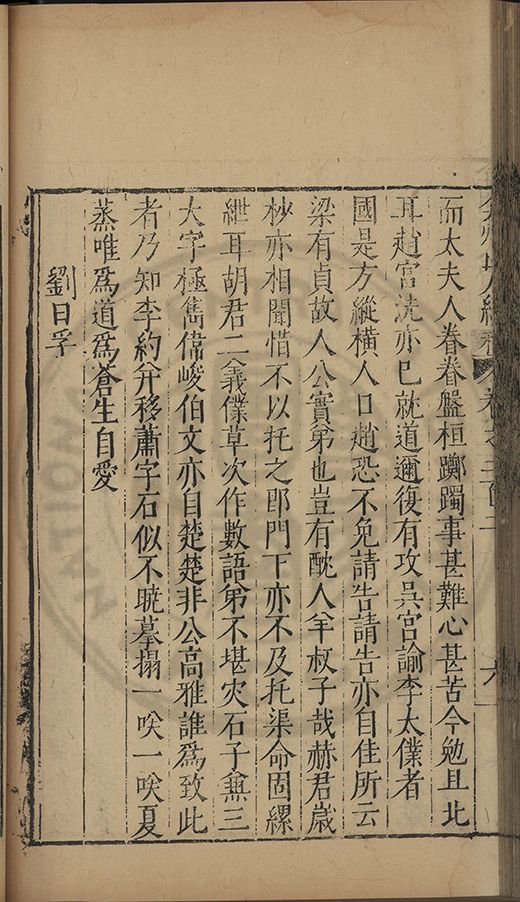 而太夫人眷眷盤桓躑躅事甚難心甚苦今勉且北
耳趙宮洗亦已就道邇復有攻吳宮諭李太僕者
國是方縱橫人口趙恐不免請告請告亦自佳所云
梁有貞故人公實弟也豈有酖人羊叔子哉赫君歲
杪亦相聞惜不以托之郎門下亦不及托渠命固縲
紲耳胡君二義僕草次作數語弟不堪灾石子無三
大字極雋偹峻伯文亦自楚楚非公高雅誰爲致此
者乃知李約并移蕭字石似不曉摹搨一咲一咲夏
蒸唯爲道爲蒼生自愛
劉日孚